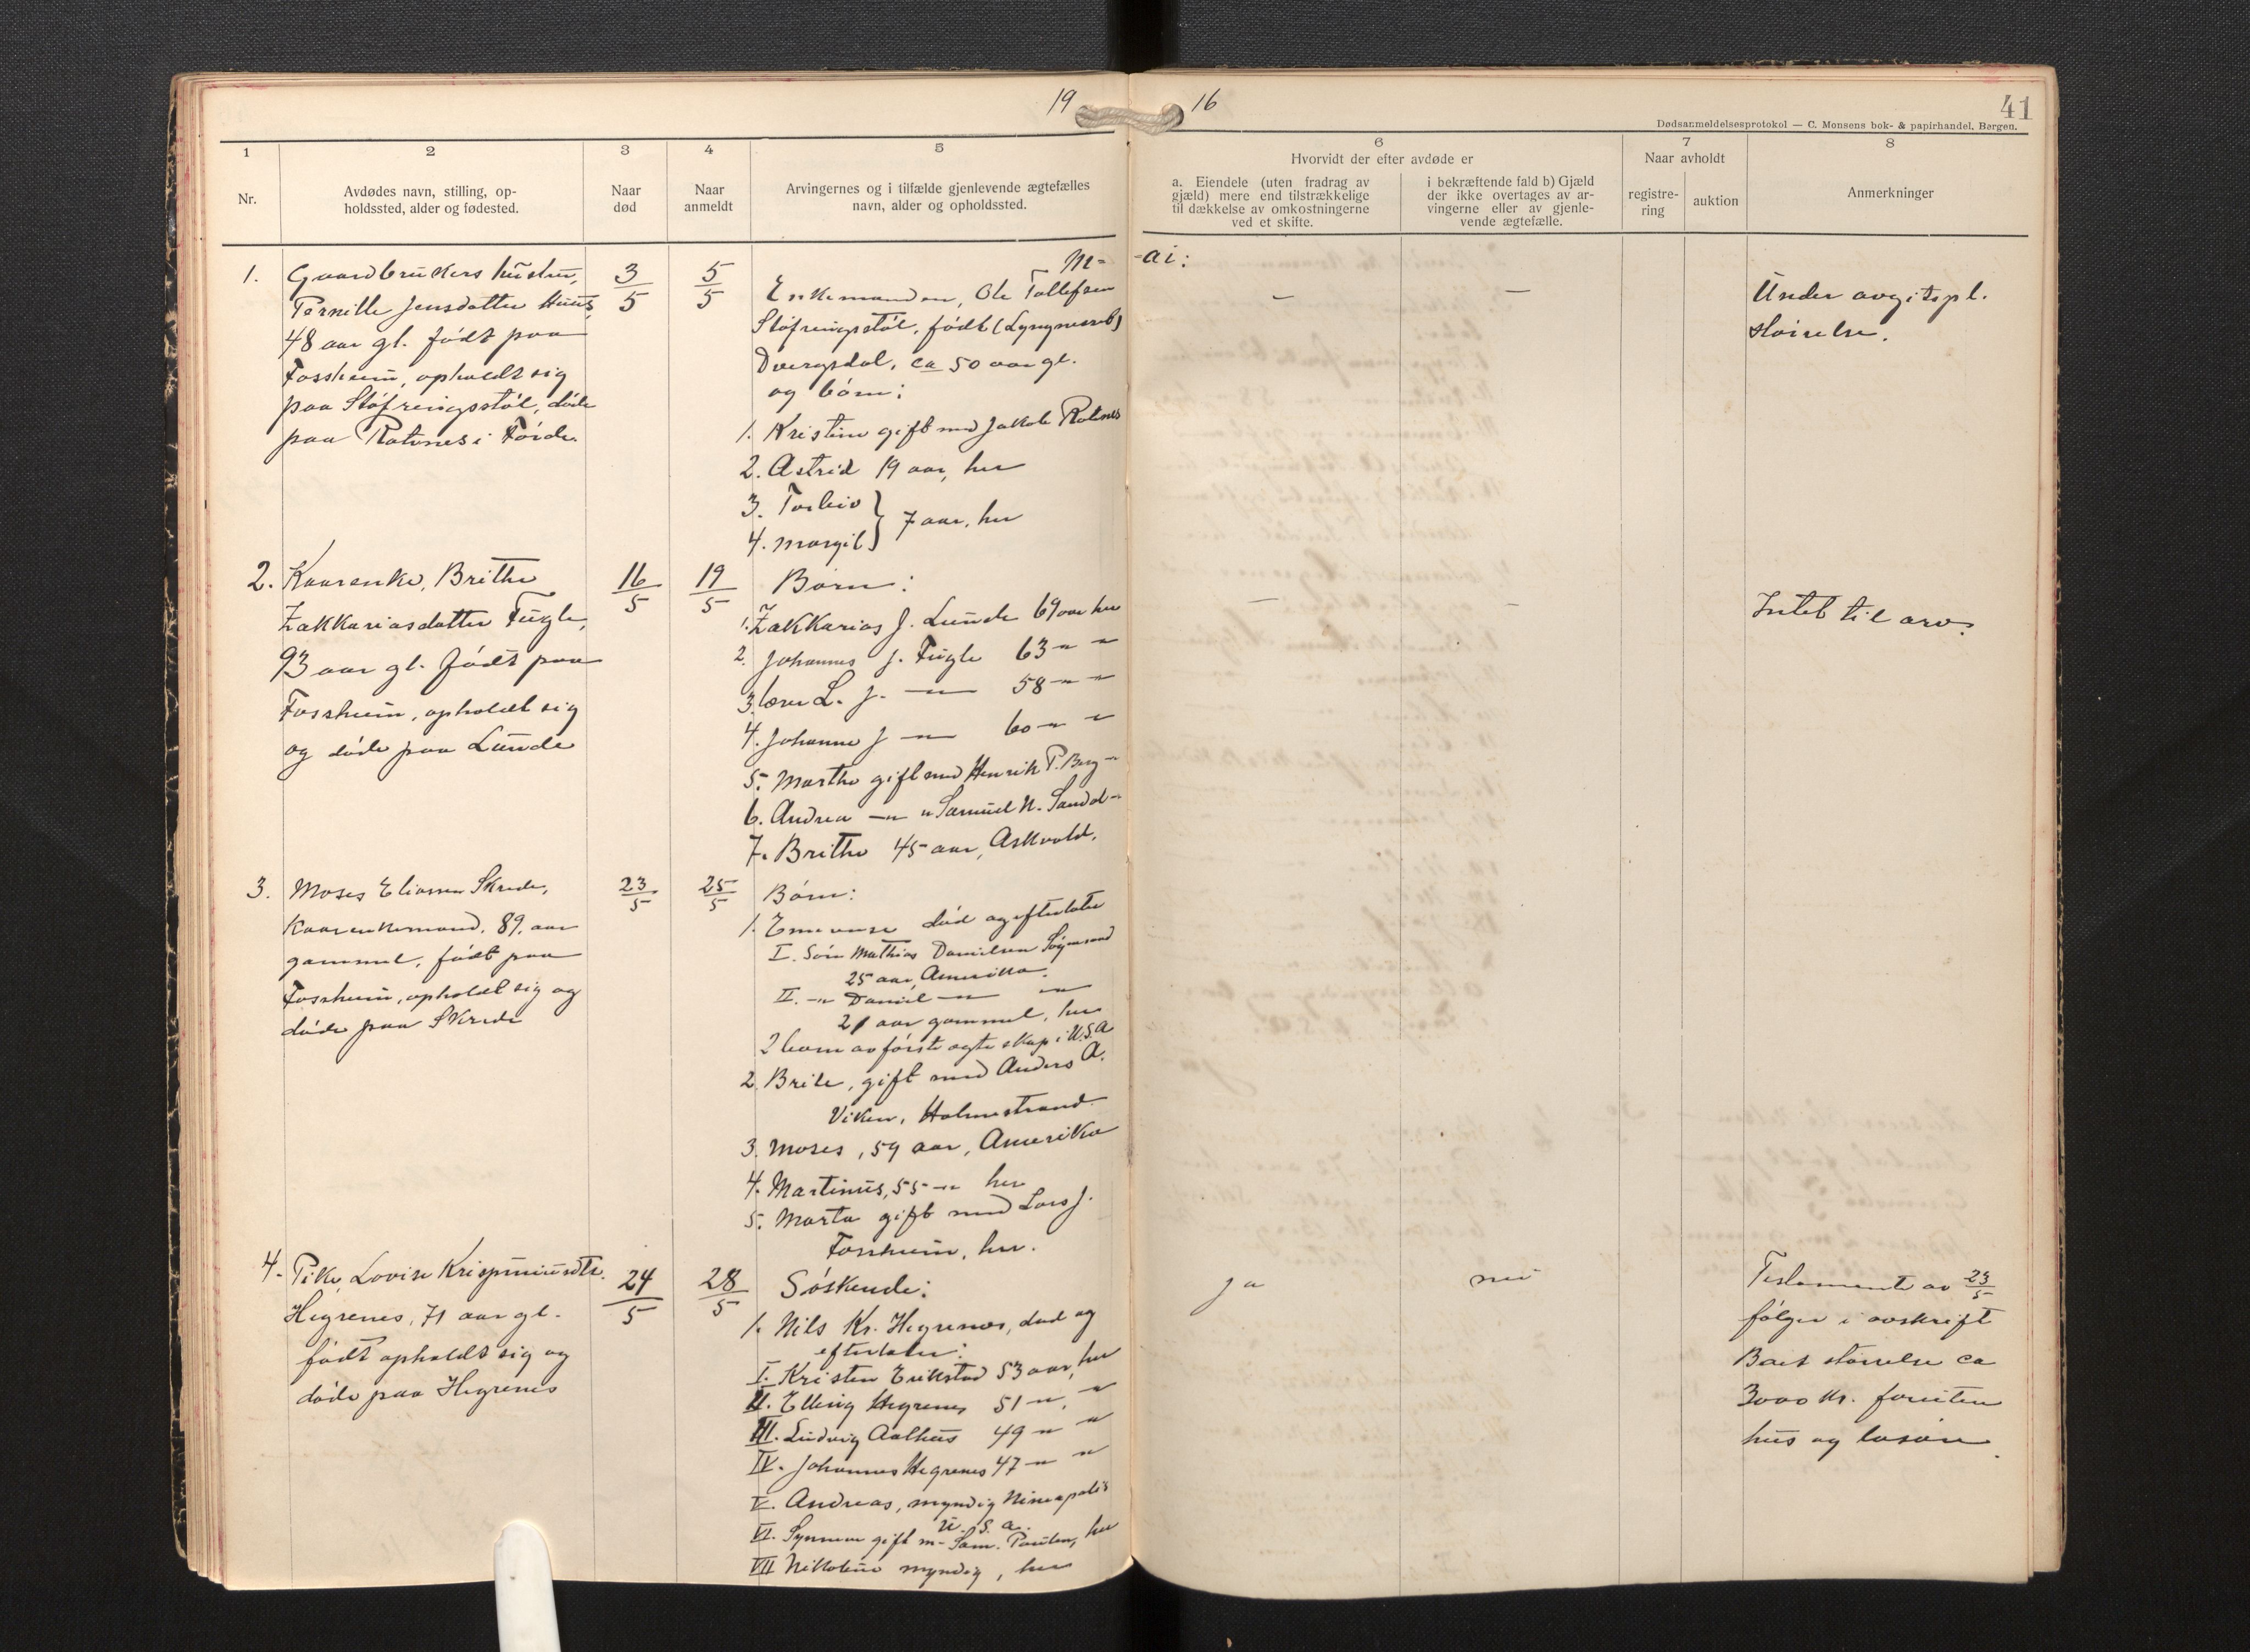 19
16
41
Dødsanmeldelsesprotokol — C. Monsens bok- & papirhandel, Bergen.
1
Nr.
2
Avdødes navn, stilling, op-
holdssted, alder og fødested.
3
Naar
død
4
Naar
anmeldt
5
Arvingernes og i tilfælde gjenlevende ægtefælles
navn, alder og opholdssted.
6
Hvorvidt der efter avdøde er
a. Eiendele (uten fradrag av
gjæld) mere end tilstrækkelige
til dækkelse av omkostningerne
ved et skifte.
i bekræftende fald b) Gjæld
der ikke overtages av ar-
vingerne eller av gjenle-
vende ægtefælle.
7
Naar avholdt
registre-
ring
auktion
8
Anmerkninger
M- -ai:
1.
Gaardbrukers hustru,
Pernille Jensdatter Huus,
48 aar gl. født paa
Fossheim, opholdt sig
paa Støfringsstøl, døde
paa Rotnes i Førde.
3/5
5/5
Enkemanden, Ole Tollefsen
Støfringsstøl, født
Dvergsdal, ca 50 aar gl.
og børn:
1. Kristine gift med Jakob Rotnes
2. Astrid 19 aar, her
3. Torleiv
4. Margit } 7 aar, her
—
—
Under avgitspl.
størrelse.
2.
Kaarenke, Brithe
Zakkariasdatter Fugle,
93 aar gl. født paa
Fossheim, opholdt sig
og døde paa Lunde
16/5
19/5
Børn:
1. Zakkarias J. Lunde 69 aar her
2. Johannes J. Fugle 63 -"- "
3. L. J. -"- 58 -"- "
4. Johanne J -"- 60 -"- "
5. Marthe gift med Henrik P. Berg -"
6. Andrea -"- " Samuel N. Sandal -"
7. Brithe 45 aar, Askvold.
—
—
Intet til arv.
3.
Moses Eliassen Skrede,
Kaarenkemand, 89 aar
gammel, født paa
Fossheim, opholdt sig og
døde paa Skrede
23/5
25/5
Børn:
1. død og efterlater
I. Søn Mathias Danielsen
25 aar, Amerika.
II. -"- Daniel -"- -"-
21 aar gammel, her
2 børn av første egteskap i U.S.A
2. Brite, gift med Anders A.
Viken, Holmestrand
3. Moses, 59 aar, Amerika
4. Martinus, 55 -"- her
5. Marta gift med Lars J.
Fossheim, her.
4.
Pike, Lovise
Hegrenes, 71 aar gl.
født opholdt sig og
døde paa Hegrenes
24/5
28/5
Søskende:
1. Nils Kr. Hegrenes, død og
efterlater:
I. Kristen Erikstad 53 aar, her
II. Elling Hegrenes 51 -"- "
III. Ludvig Aalhus 49 -"- "
IV. Johannes Hegrenes 47 -"- "
V. Andreas, myndig Mineapolis
U. S. A.
VI. Synneve gift m- Sam. her
VII Nikoline myndig, her
ja
nei
Testamente av 23/5
følger i avskrift
Boets størrelse ca
3000 kr. foruten
hus og løsøre.